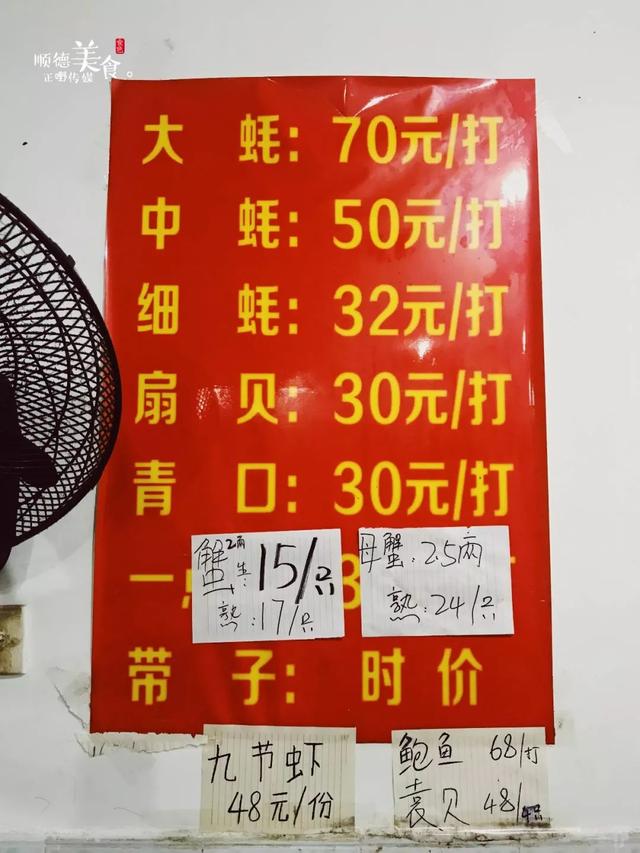 顺德美食。
正嘢传媒
大 蚝：70元/打
中 蚝：50元/打
细 蚝：32元/打
扇 贝：30元/打
青 口：30元/打
蟹 2两 生：15/只
熟：17/只
母蟹：2.5両
熟：24/只
一
带 子：时 价
九节虾
48元/份
鲍鱼 68/打
袁贝 48/4只